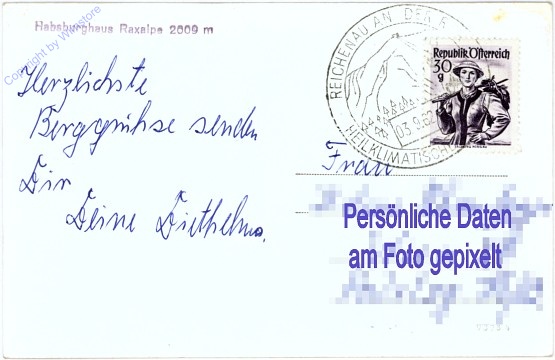 Habsburghaus Raxalpe 2009 m
Copyright by Winstore
REICHENAU AN DER R
HEILKLIMATISCH
03.9.62
Republik Österreich
30
g
Herzlichste
Berggrühse senden
Dir
Deine Diethelms.
Frau
Persönliche Daten
am Foto gepixelt